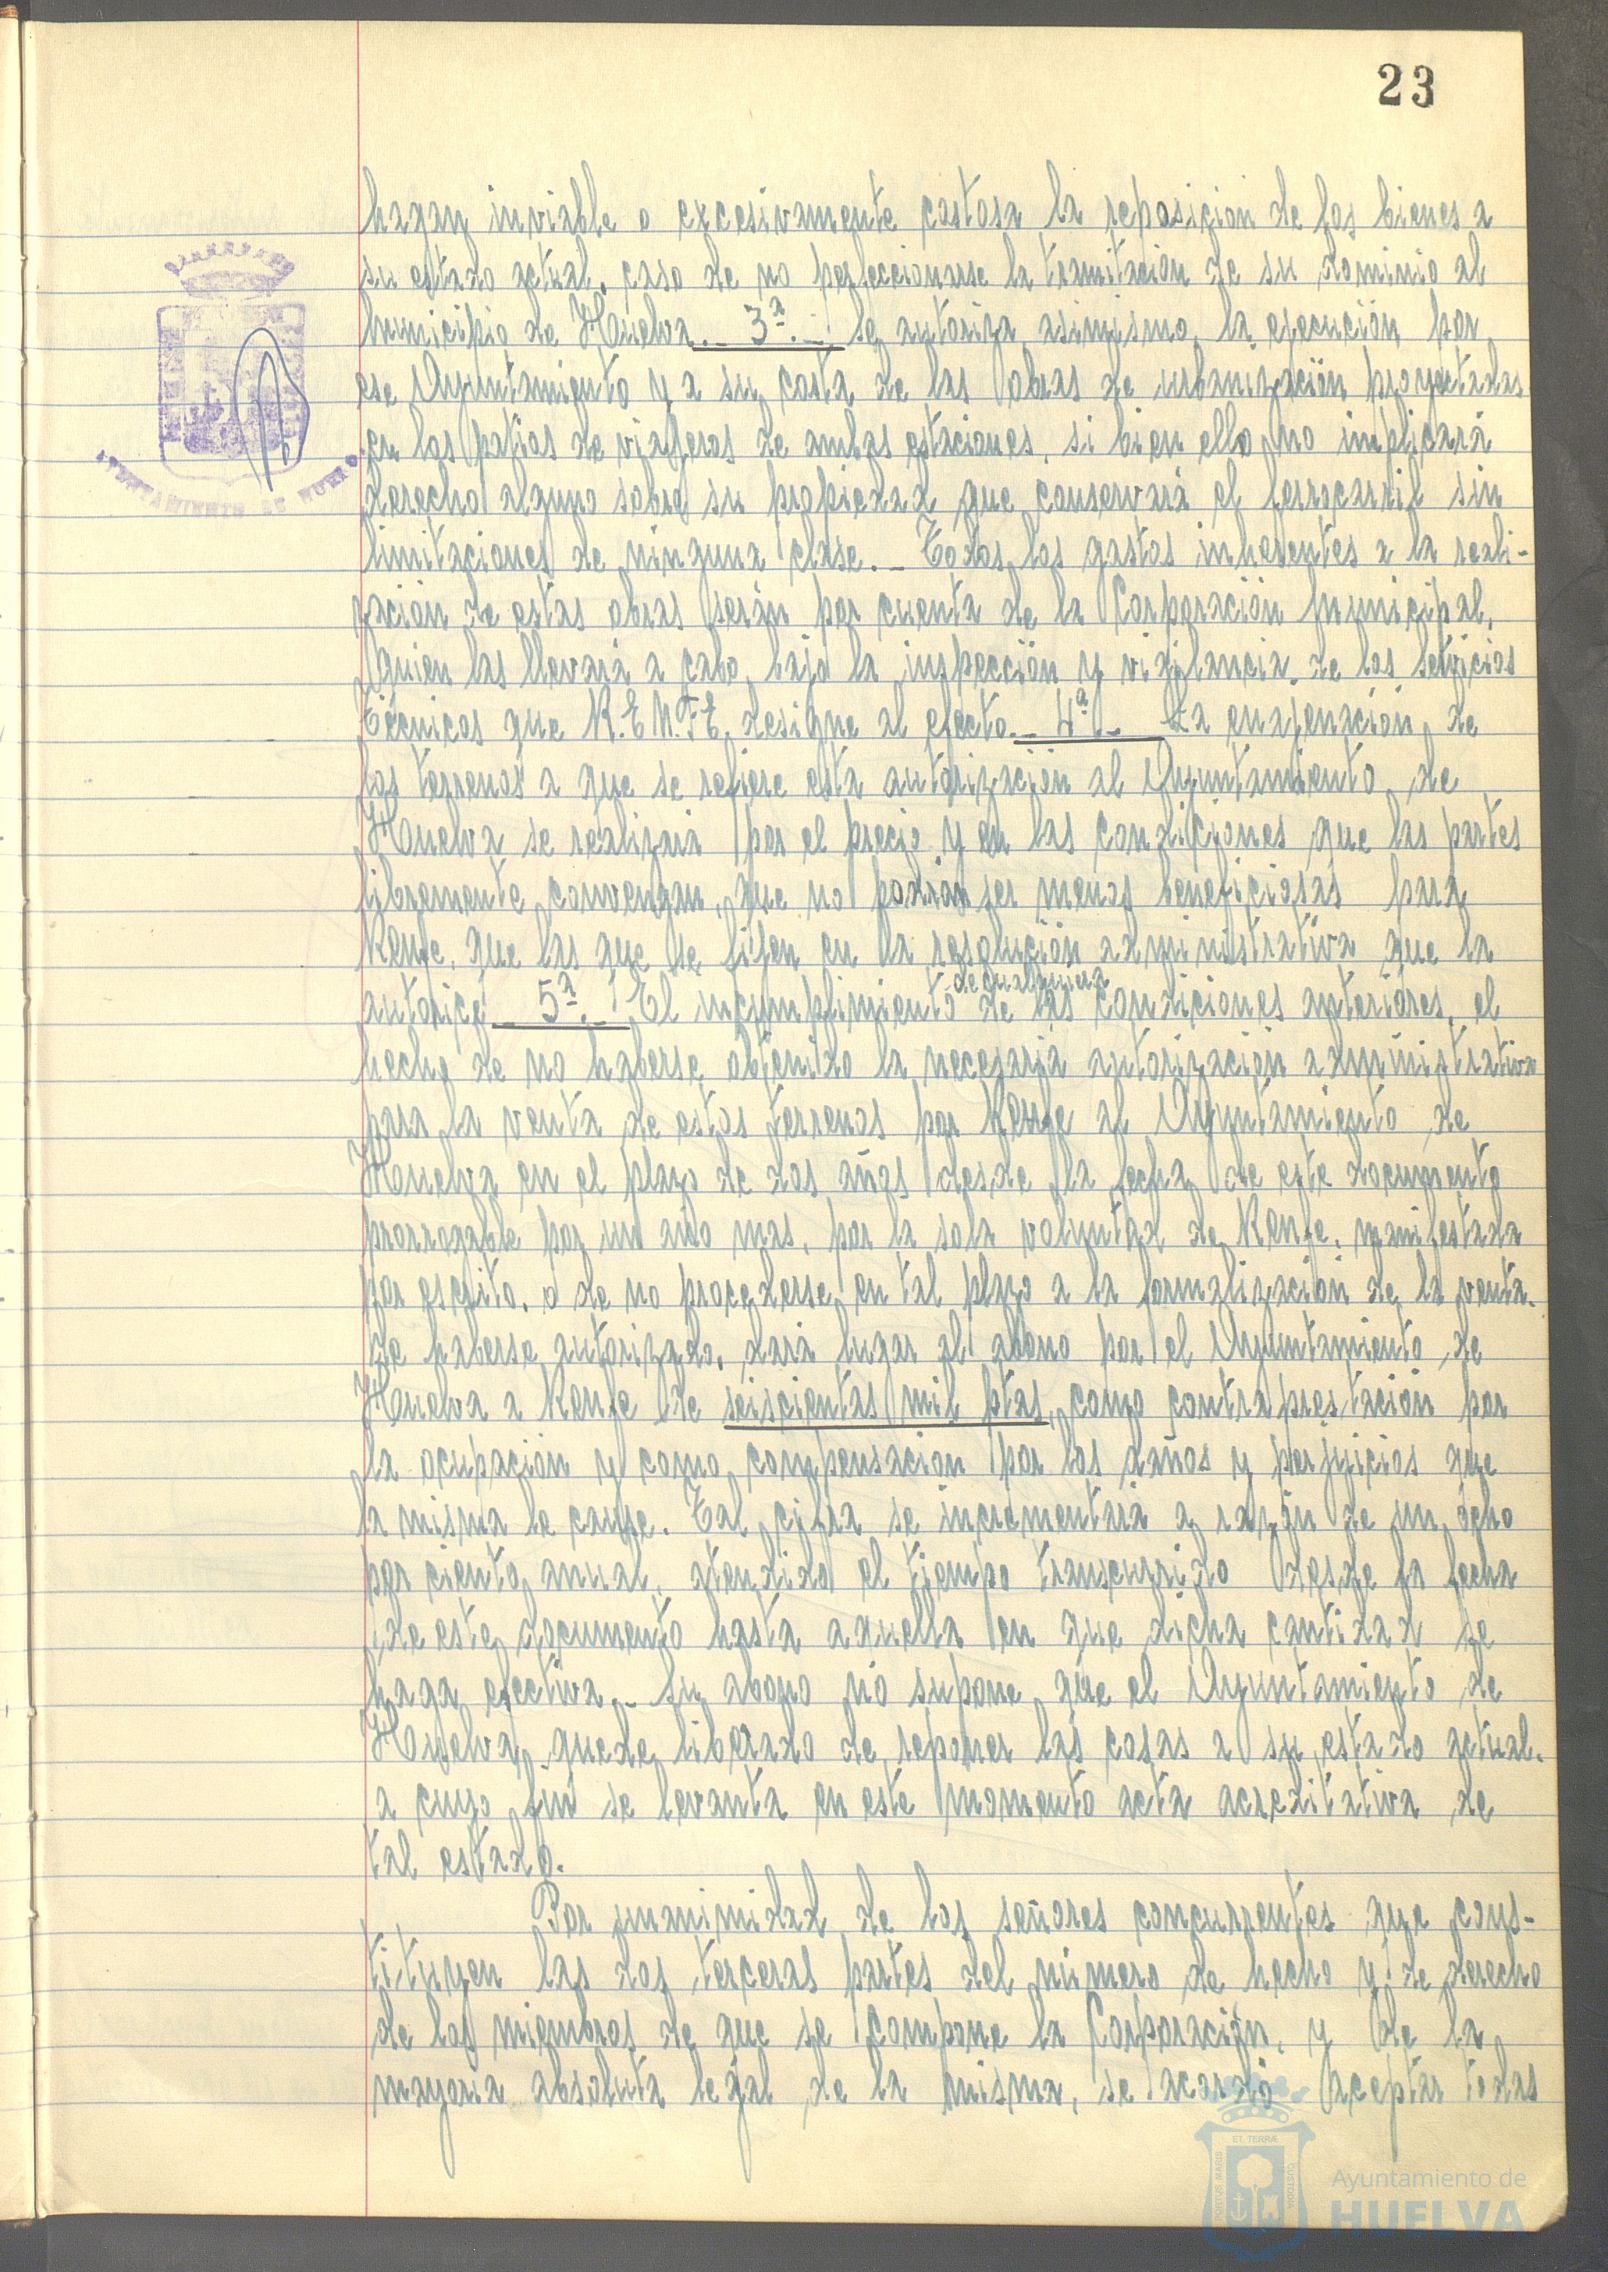 23
hagan inviable o excesivamente costosa la reposición de los bienes a
su estado actual, caso de no perfeccionarse la tramitación de su dominio al
Municipio de Huelva.- 3ª.- Se autoriza, asimismo, la ejecución por
ese Ayuntamiento y a su costa de las obras de urbanización proyectadas
en los patios de viajeros de ambas estaciones, si bien ello no implicará
derecho alguno sobre su propiedad que conservará el ferrocarril sin
limitaciones de ninguna clase.- Todos los gastos inherentes a la reali-
zación de estas obras serán por cuenta de la Corporación Municipal,
quien las llevará a cabo bajo la inspección y vigilancia de los Servicios
Técnicos que R.E.N.F.E. designe al efecto.- 4ª.- La enajenación de
los terrenos a que se refiere esta autorización al Ayuntamiento de
Huelva se realizará por el precio y en las condiciones que las partes
libremente convengan, que no podrán ser menos beneficiosas para
Renfe, que las que se fijen en la resolución administrativa que la
autorice.- 5ª.- El incumplimiento de cualquiera de las condiciones anteriores, el
hecho de no haberse obtenido la necesaria autorización administrativa
para la venta de estos terrenos por Renfe al Ayuntamiento de
Huelva en el plazo de dos años desde la fecha de este documento
prorrogable por un año mas, por la sola voluntad de Renfe, manifestada
por escrito, o de no procederse en tal plazo a la formalización de la venta
de haberse autorizado, dará lugar al abono por el Ayuntamiento de
Huelva a Renfe de seiscientas mil ptas, como contraprestación por
la ocupación y como compensación por los daños y perjuicios que
la misma le cause. Tal cifra se incrementará a razón de un ocho
por ciento anual, atendido el tiempo transcurrido desde la fecha
de este documento hasta aquella en que dicha cantidad se
haga efectiva.- Su abono no supone que el Ayuntamiento de
Huelva quede liberado de reponer las cosas a su estado actual,
a cuyo fin se levanta en este momento acta acreditativa de
tal estado.
Por unanimidad de los señores concurrentes que cons-
tituyen las dos terceras partes del número de hecho y de derecho
de los miembros de que se compone la Corporación, y de la
mayoría absoluta legal de la misma, se acordó aceptar todas
AYUNTAMIENTO DE HUELVA
PORTUS MARIS ET TERRAE CUSTODIA
Ayuntamiento de
HUELVA